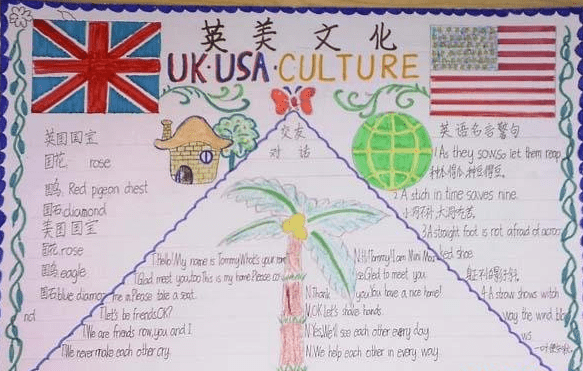 英美文化
UK·USA·CULTURE
英国国宝
国花 rose
国鸟 Red pigeon chest
国石 diamond
美国国宝
国花 rose
国鸟 eagle
国石 blue diamond
交友
对话
T.Hello! My name is Tommy. What's your name
T.Glad meet you,too. This is my home. Please co
me in. Please take a seat.
T.let's be friends,OK?
T.We are friends now, you and I
T.We never make each other cry.
N.Hi! Tommy! I am Mini
Glad to meet you.
N.Thank you. You have a nice home!
N.OK. Let's shake hands.
N.Yes. We'll see each other every day.
N.We help each other in every way.
英语名言警句
1 As they sow, so let them reap
2 A stich in time saves nine.
小洞不补,大洞吃苦.
3 A straight foot is not afraid of a croo
ked shoe.
4 A straw shows witch
way the wind blo
ws